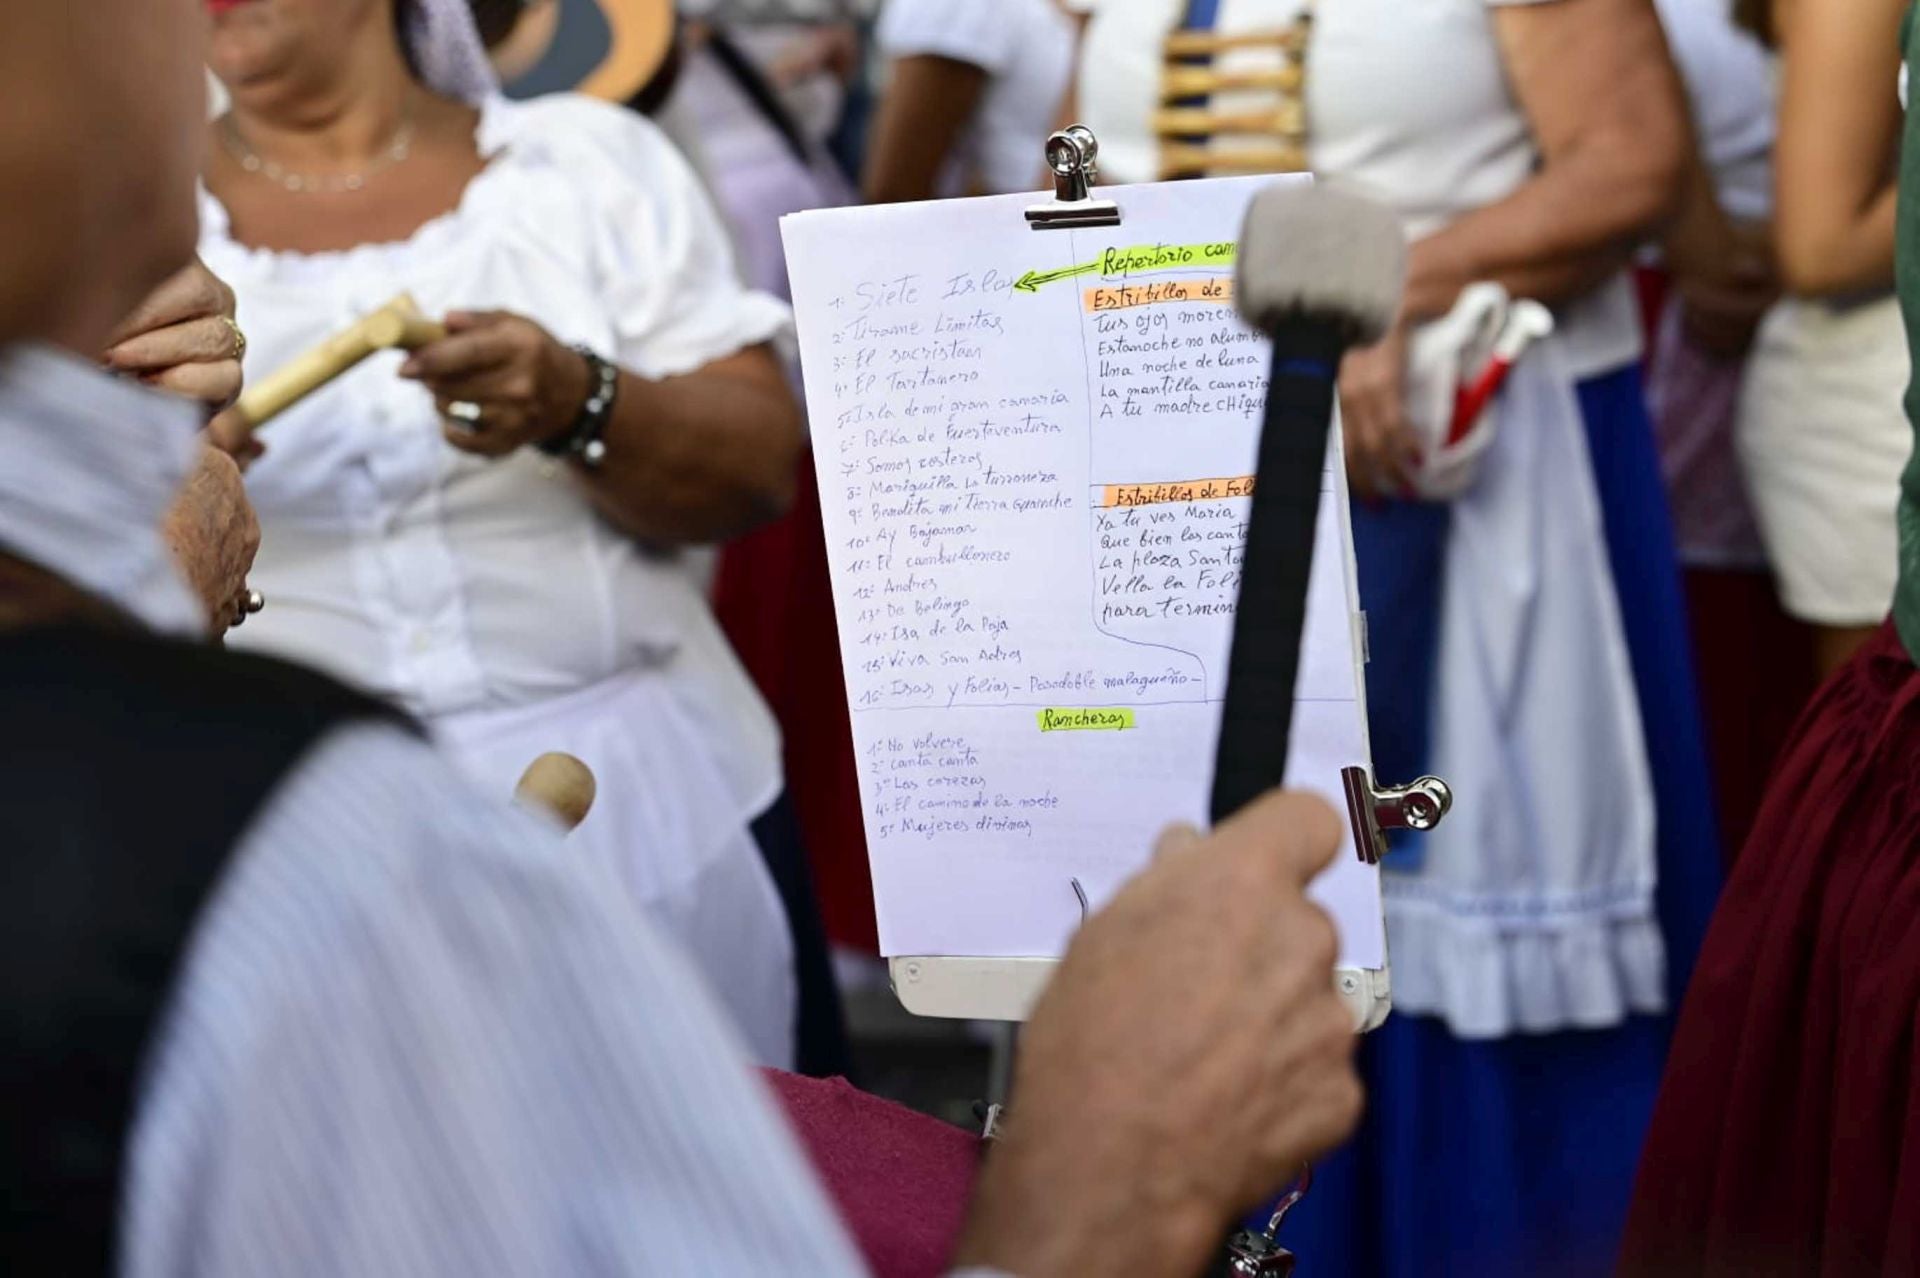 1- Siete Islas
2- Tirame Limitas
3- El sacristaan
4- El Tartanero
5- Isla de mi gran canaria
6- Polka de Fuerteventura
7- Somos costeros
8- Mariquilla La turronera
9- Bendita mi tierra Guanche
10- Ay Bajamar
11- El cambullonero
12- Andres
13- De Belingo
14- Isa de la Paja
15- Viva San Adres
16- Isas y Folias - Pasodoble malagueño -
Repertorio can
Estribillos de
Tus ojos moren
Estanoche no alumb
Una noche de luna
La mantilla canaria
A tu madre cHiqu
Estribillos de Fol
Ya tu ves Maria
que bien las cant
La plaza Santa
Vella la Foli
para termin
Rancheras
1- No volvere
2- canta canta
3- Las cerezas
4- El camino de la noche
5- Mujeres divinas